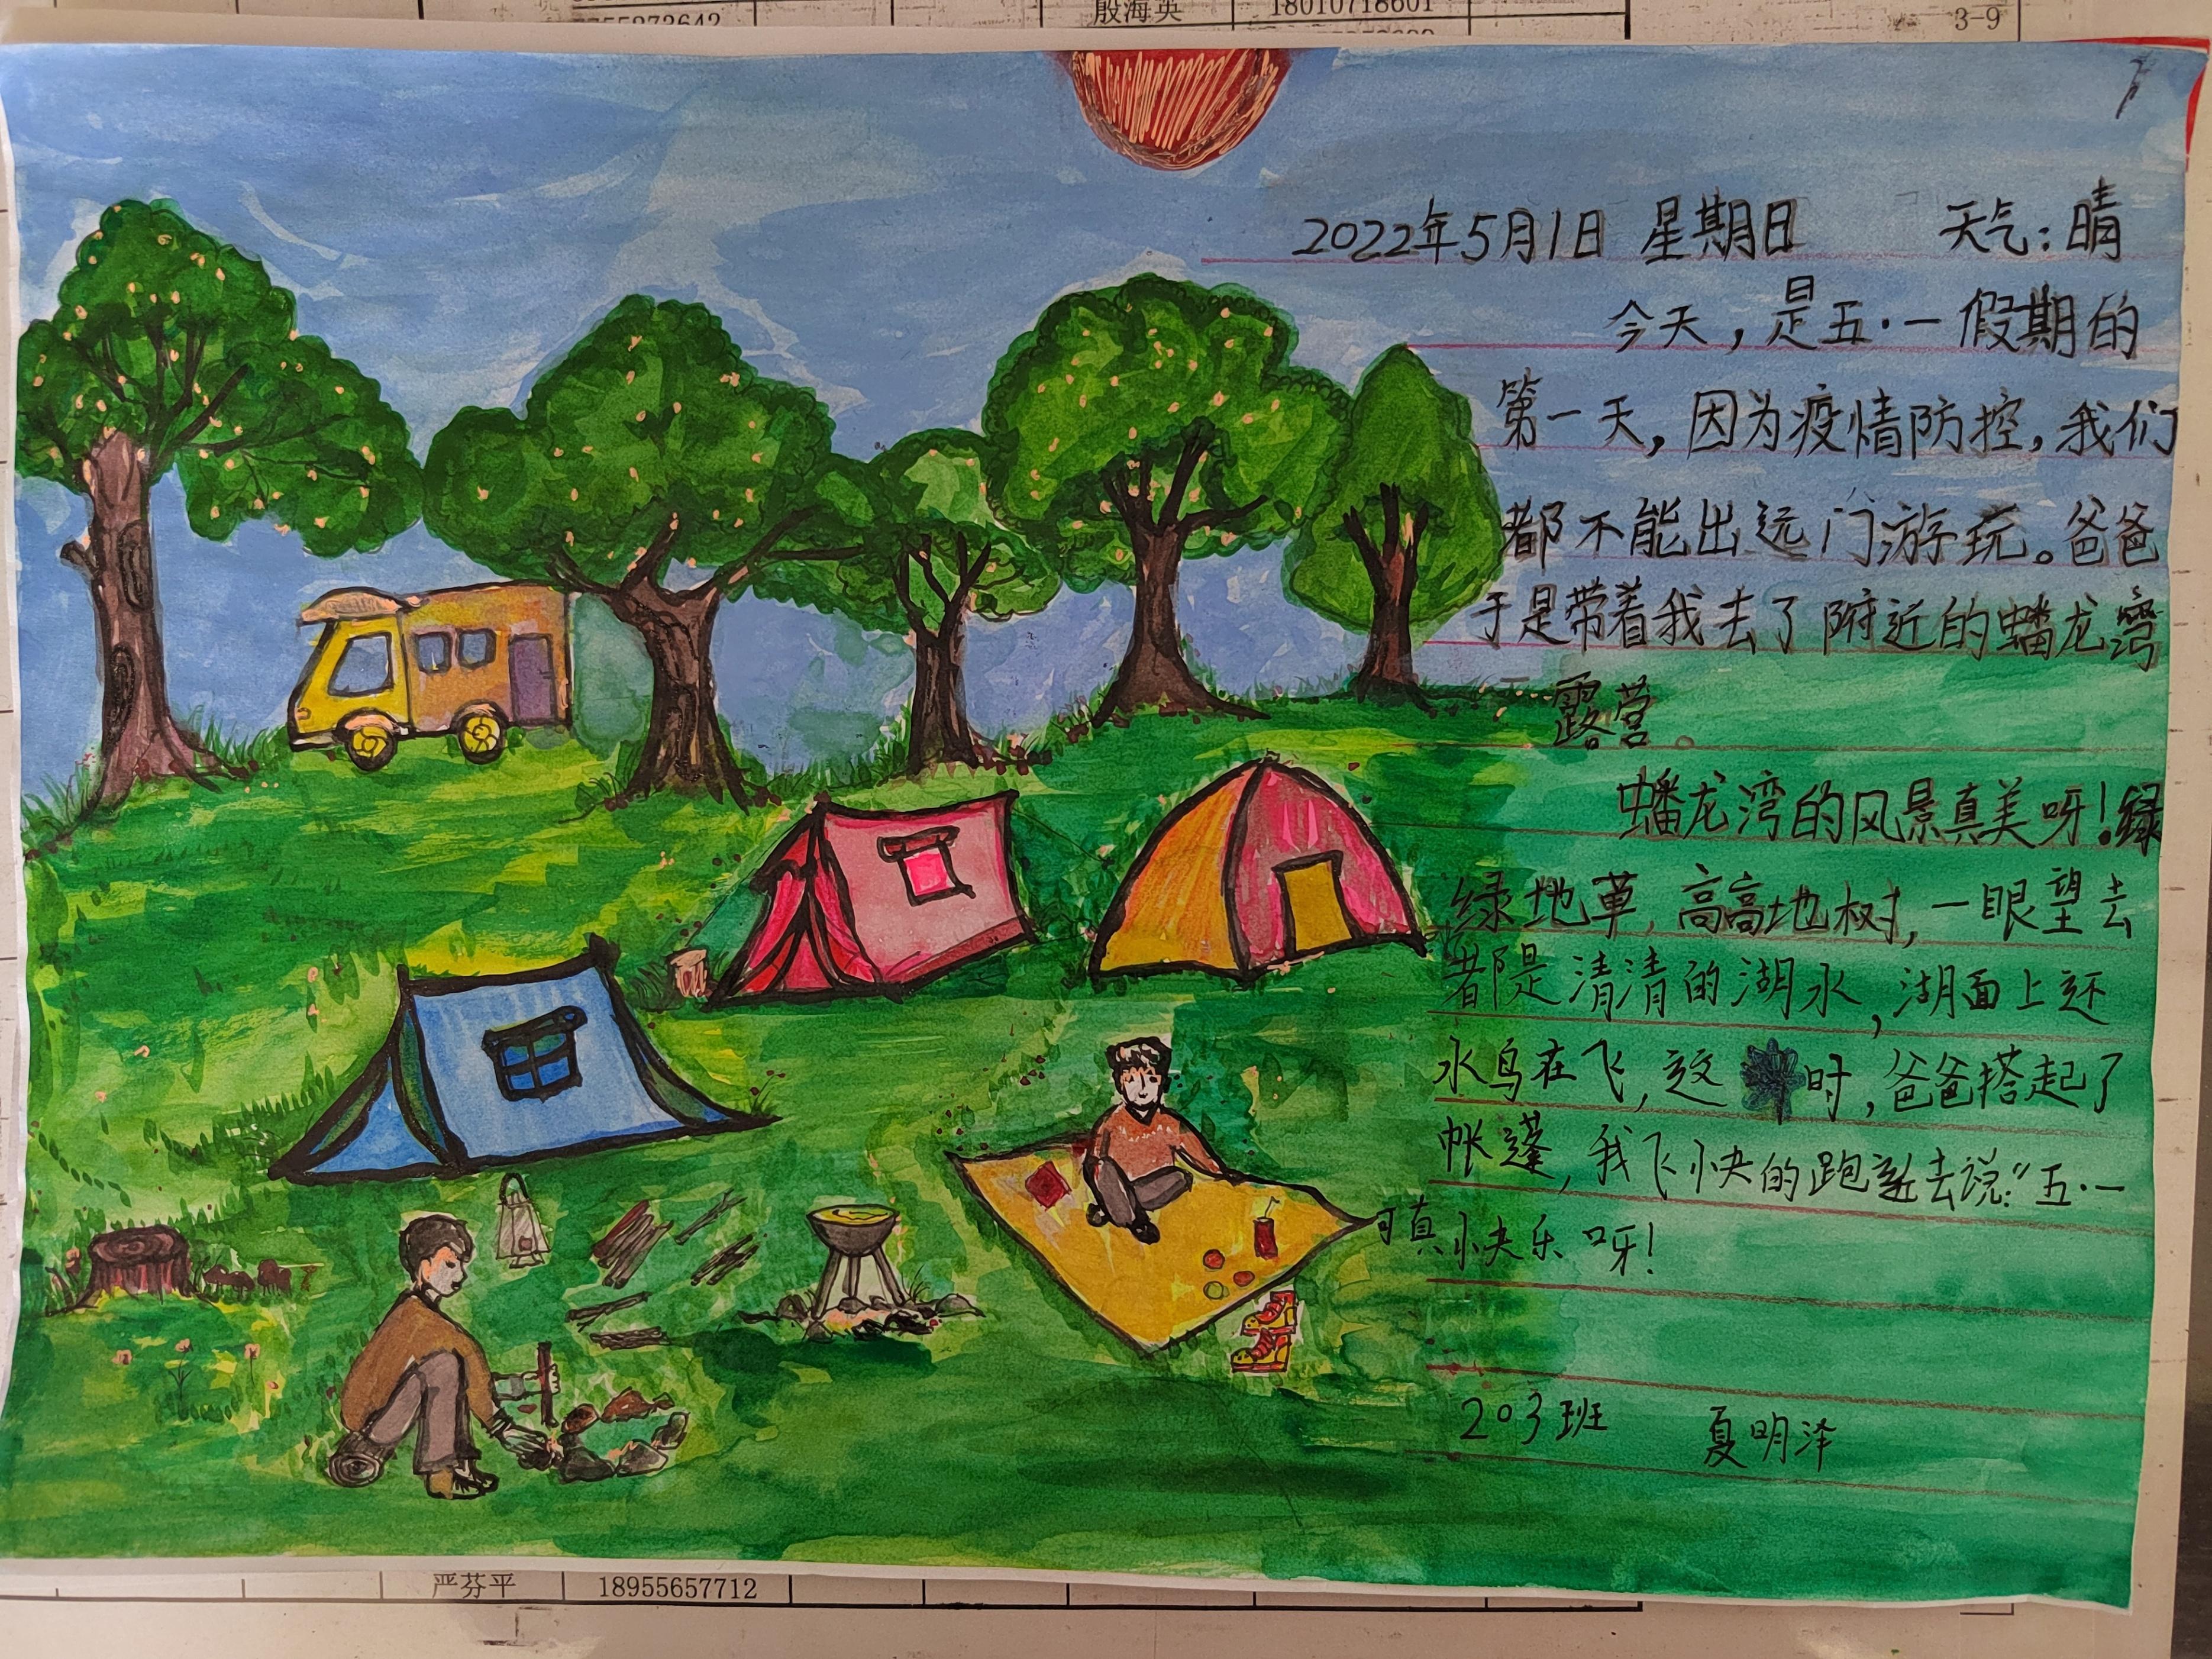 殷海英 18010718601
3-9
2022年5月1日 星期日 天气:晴
今天,是五·一假期的
第一天,因为疫情防控,我们
都不能出远门游玩。爸爸
于是带着我去了附近的蟠龙湾
露营。
蟠龙湾的风景真美呀!绿
绿地草,高高地树,一眼望去
都是清清的湖水,湖面上还
水鸟在飞,这时,爸爸搭起了
帐篷,我飞快的跑进去说:"五·一
可真快乐呀!
203班 夏明泽
严芬平 18955657712